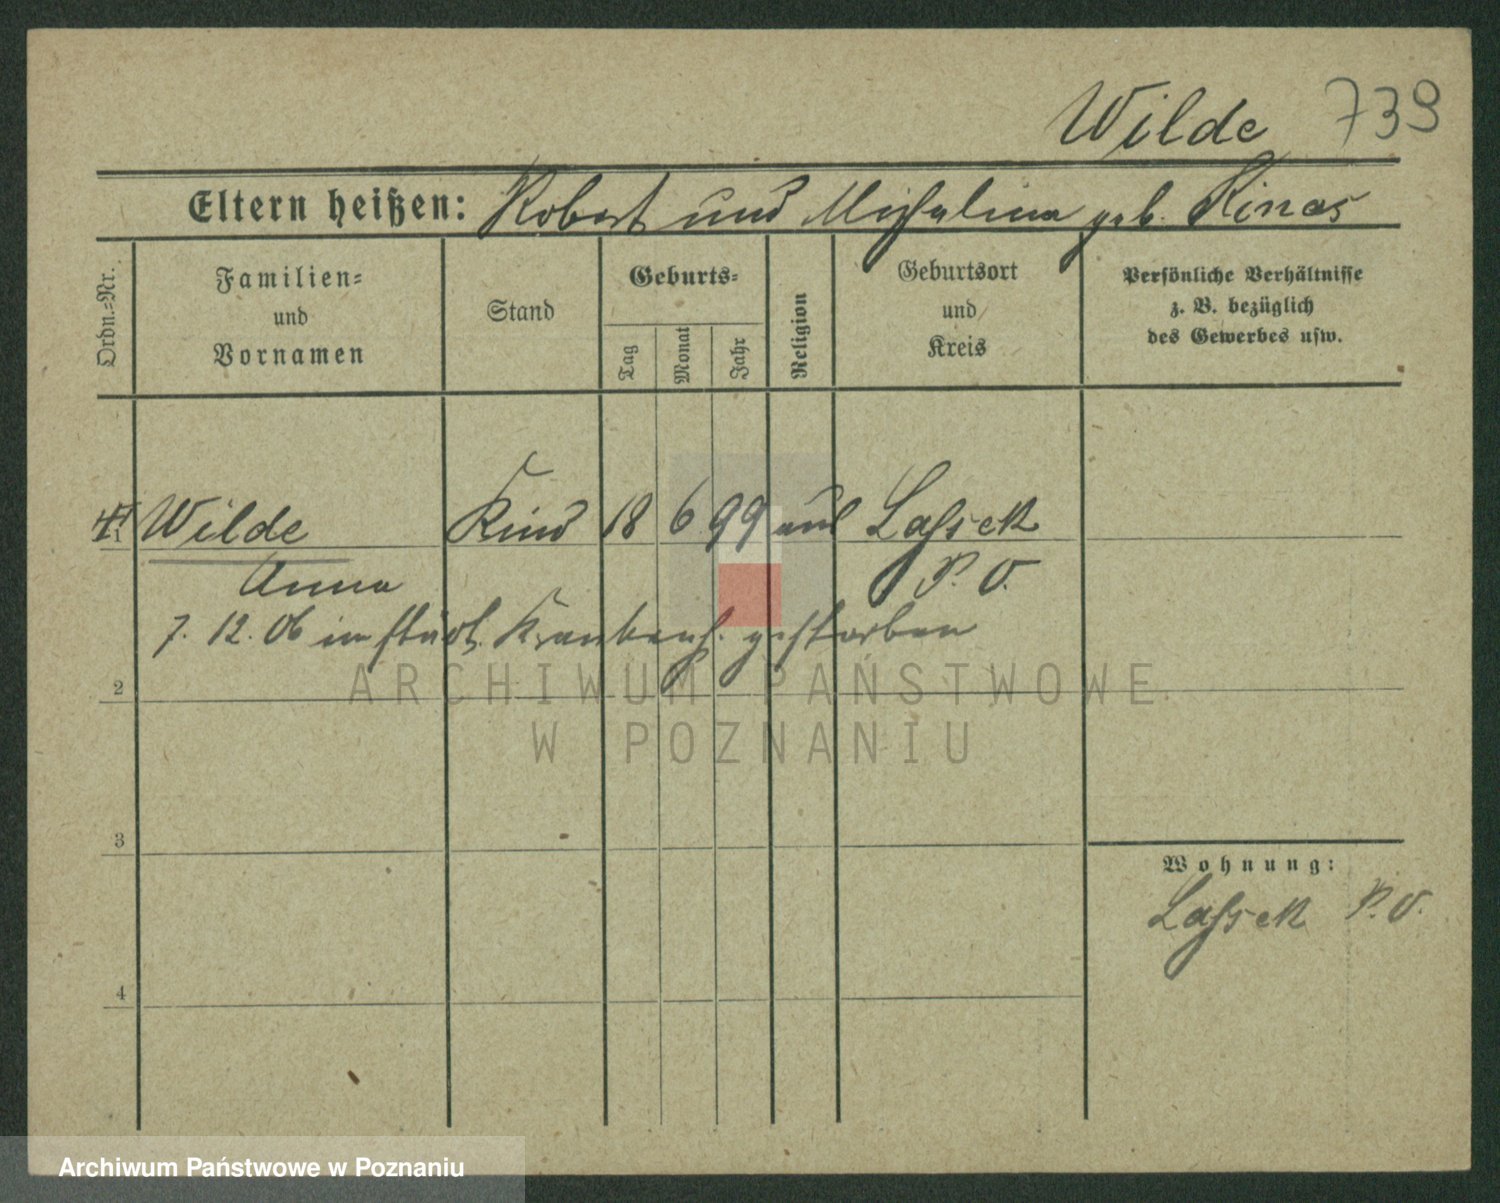 Wilde 739
Eltern heißen: Robert und Michalina geb. Rinas
Ordn.-Nr.
Familien-
und
Vornamen
Stand
Geburts-
Tag
Monat
Jahr
Religion
Geburtsort
und
Kreis
Persönliche Verhältnisse
z. B. bezüglich
des Gewerbes usw.
1 Wilde Kind 18 6 99 Lassek
Anna P. O.
7. 12. 06 im städt. Krankenh. gestorben
2
3
4
Wohnung:
Lassek P. O.
ARCHIWUM PAŃSTWOWE
W POZNANIU
Archiwum Państwowe w Poznaniu